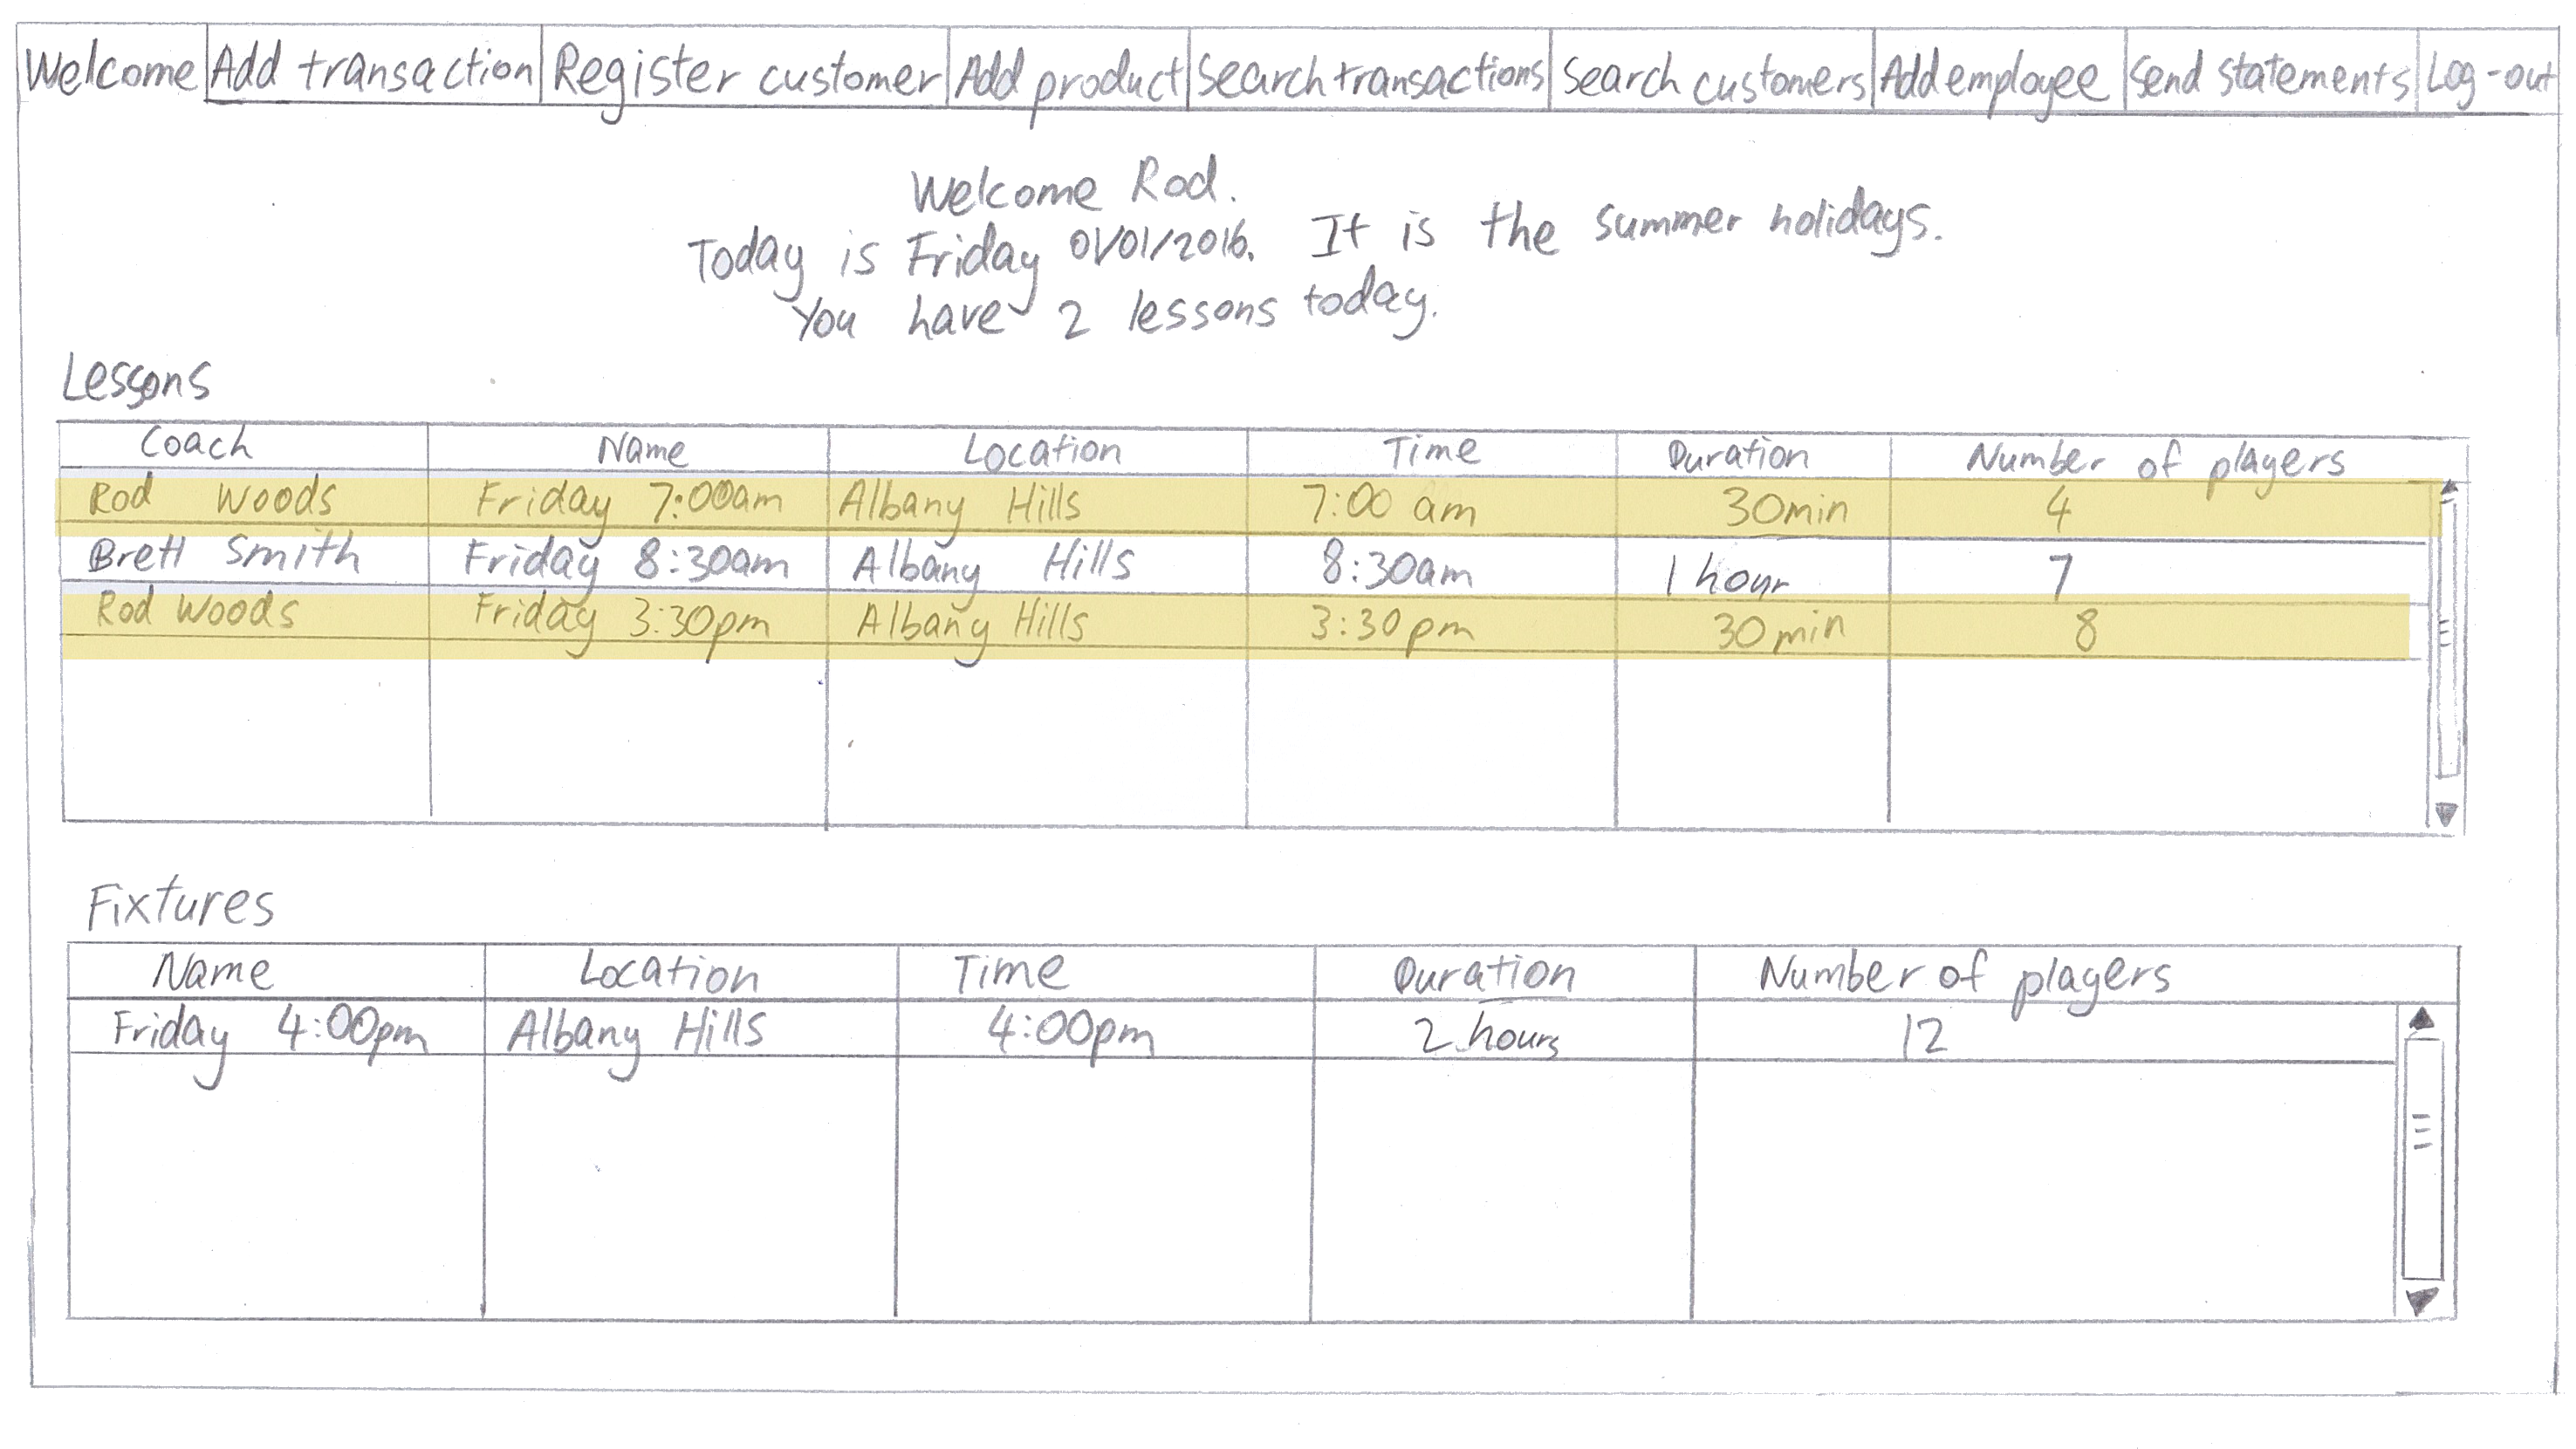 Welcome Add transaction Register customer Add product Search transactions Search customers Add employee Send statements Log-out
Welcome Rod.
Today is Friday 01/01/2016. It is the summer holidays.
You have 2 lessons today.
Lessons
Coach Name Location Time Duration Number of players
Rod Woods Friday 7:00am Albany Hills 7:00 am 30min 4
Brett Smith Friday 8:30am Albany Hills 8:30am 1 hour 7
Rod Woods Friday 3:30pm Albany Hills 3:30pm 30min 8
Fixtures
Name Location Time Duration Number of players
Friday 4:00pm Albany Hills 4:00pm 2 hours 12